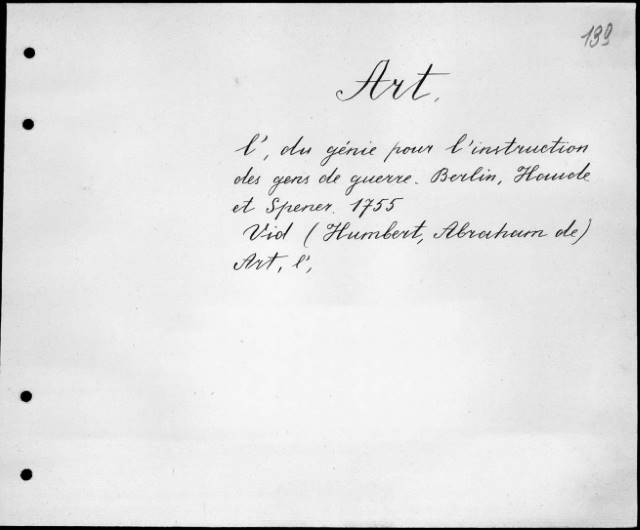 139
Art.
l', du génie pour l'instruction
des gens de guerre. Berlin, Haude
et Spener. 1755
Vid (Humbert, Abraham de)
Art, l',